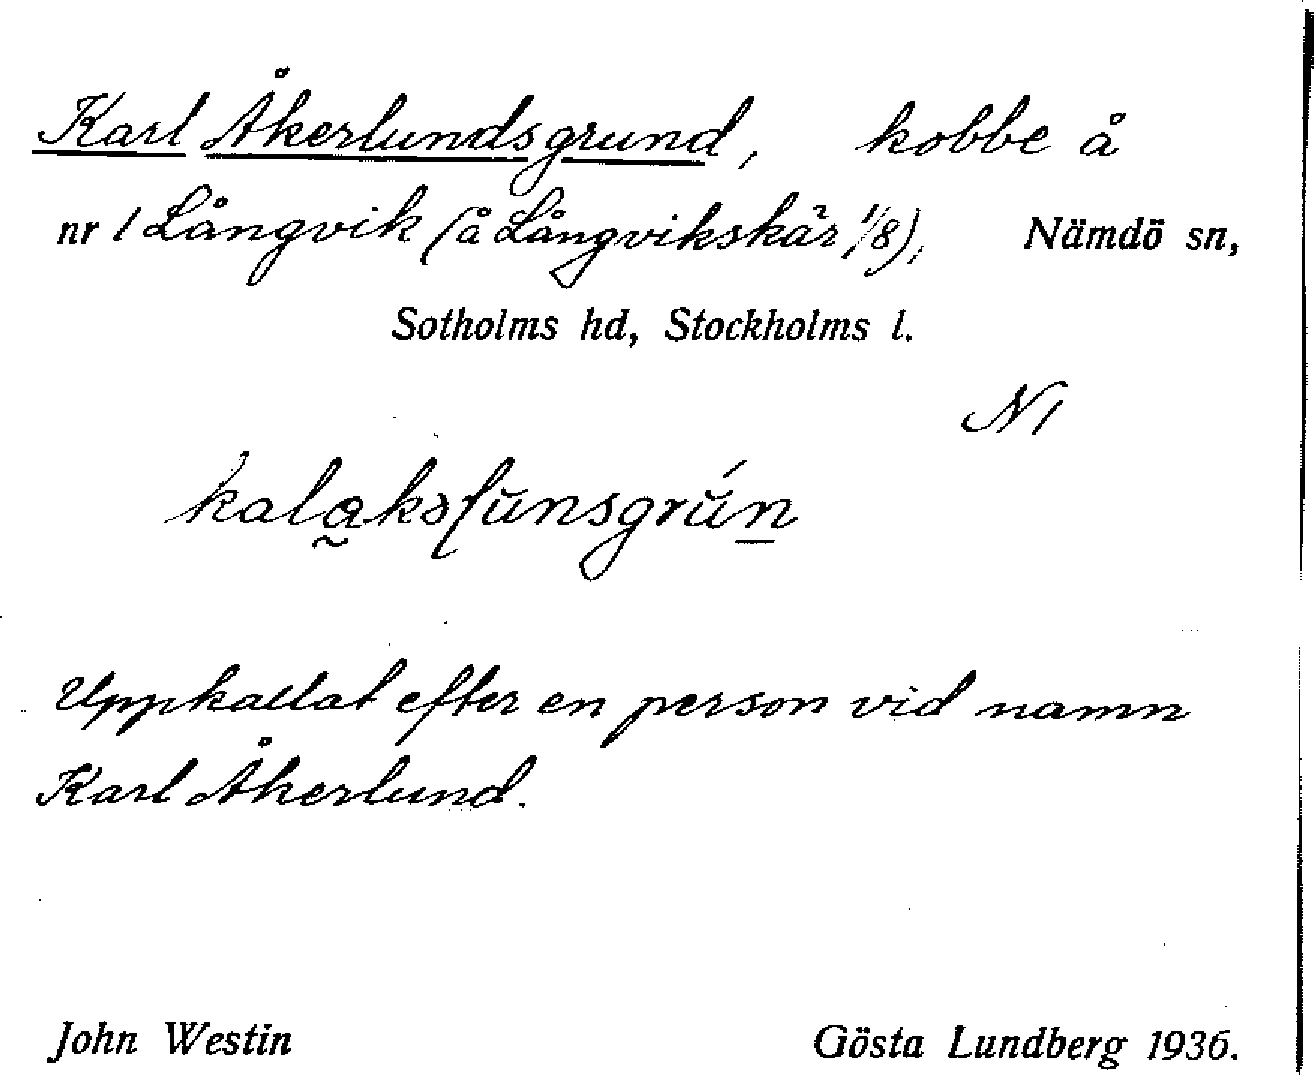 Karl Åkerlundsgrund, kobbe å
nr 1 Långvik (å Långvikskär 1/8), Nämdö sn,
Sotholms hd, Stockholms l.
N1
Uppkallat efter en person vid namn
Karl Åkerlund.
John Westin Gösta Lundberg 1936.